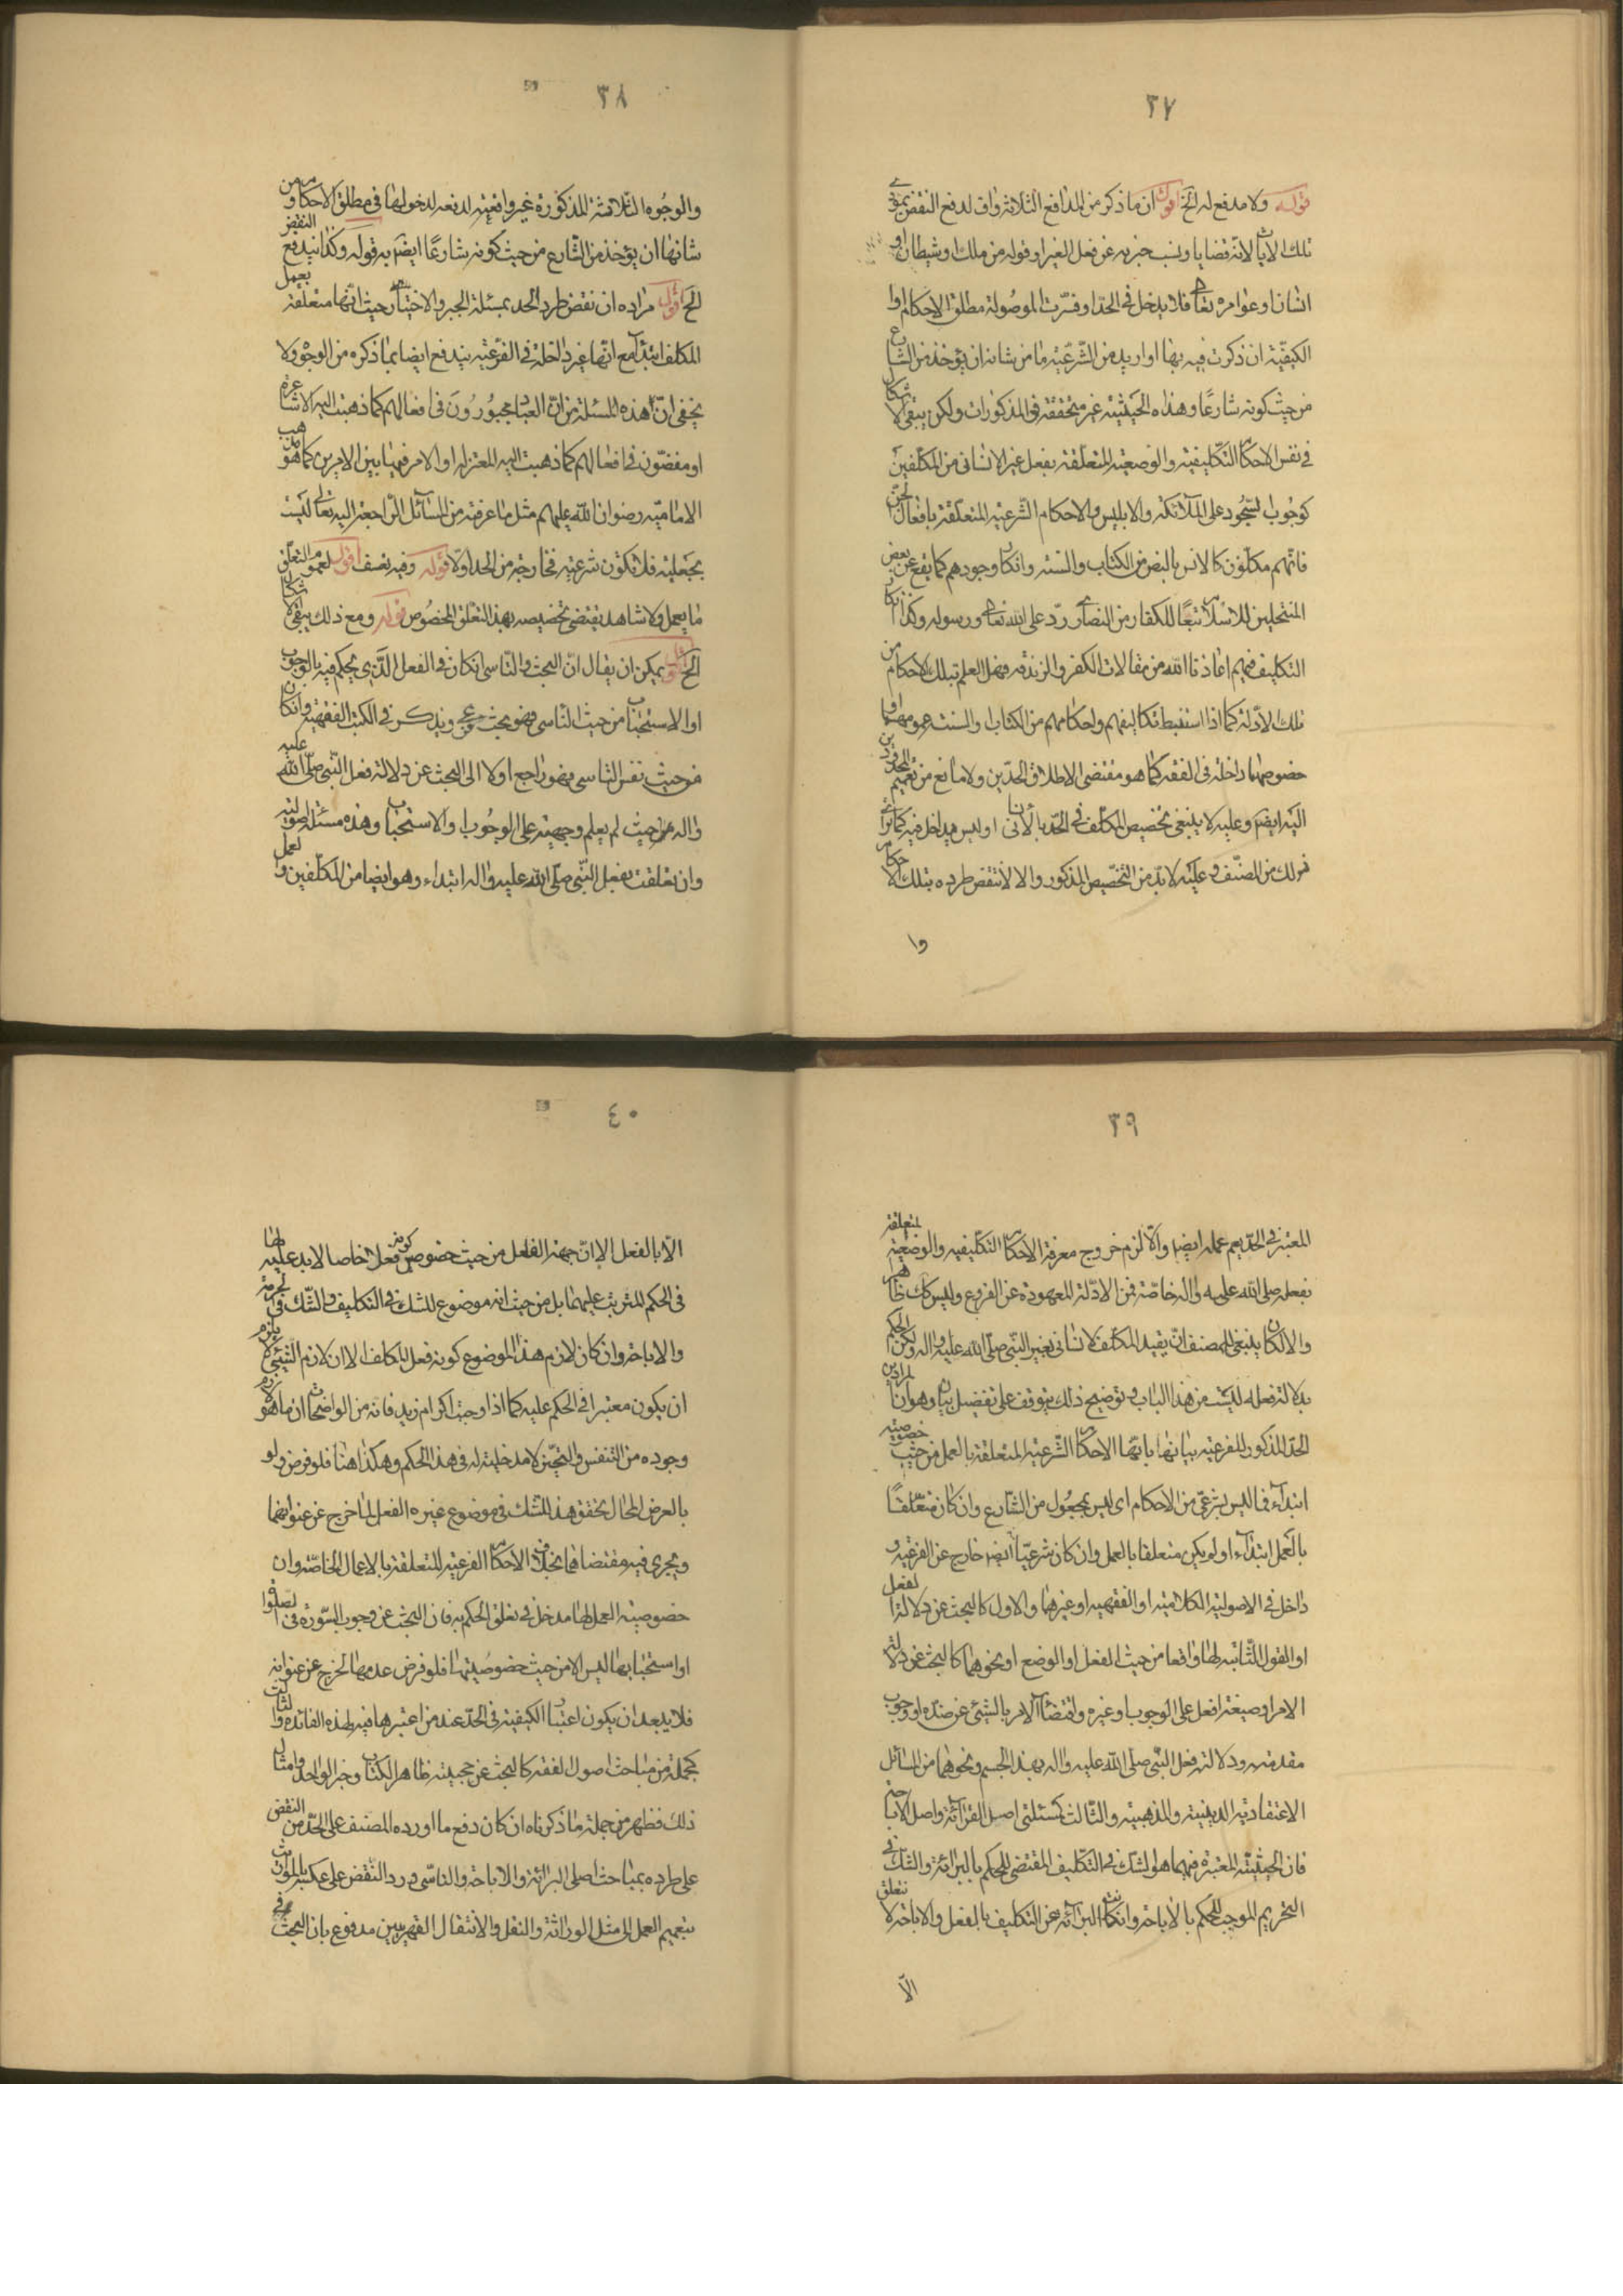 ٣٧
قوله ولا مدفع له الخ اقول ان ما ذكر من المدافع الثلاثة واف لدفع النقض
تلك الايات لانه قضايا ونسب خبريه عن فعل الغير او قوله من ملك او شيطان او
انسان او عوامره تعالى فلا يدخل في الحد او فسّرت الموصولة مطلق الاحكام او
الكيفيّة ان ذكرت فيه بها او اريد من الشّرعيّة ما من شانه ان يؤخذ من الشارع
من حيث كونه شارعًا وهذه الحيثيته غير متحققة في المذكورات ولكن يبقى الاشكال
في نفس الاحكام التكليفيه والوضعيه المتعلقة بفعل غير الانسانى من المكلّفين
كوجوب السّجود على الملآئكة والابليس والاحكام الشّرعيه المتعلّقة بافعال الجنّ
فانهم مكلّفون كالانس بالنص من الكتاب والسنته وانكار وجودهم كما يقع عن بعض
المنتحلين للاسلام تبعًا للكفار من النصارى ردّ على الله تعالى ورسوله وكذا انكار
التكاليف فيهم اعاذنا الله من مقالات الكفر والزندقه فهل العلم بتلك الاحكام من
تلك الادلة كما اذا استنبط تكاليفهم واحكامهم من الكتاب والسنته عمومهما او
خصوصهما داخلة في الفقه كما هو مقتضى الاطلاق الحدّين ولا مانع من تعميم
اليه ايضًا وعليه لا ينبغي تخصيص المكلّف في الحدّ بالانسانى او ليس بداخل فيه كما تراى
ذلك من المصنّف وعليه لا بدّ من التخصيص المذكور والا لانتقض طرده بتلك الاحكام
وا
٣٨
والوجوه الثلاثة المذكورة غير وافيته لدفعه لدخولها في مطلق الاحكام ومن
شانها ان يؤخذ من الشارع من حيث كونه شارعًا ايضًا به قوله وكذا يندفع النقض
الخ اقول مراده ان نقض طرد الحد بمسئلة الجبر والاختيار حيث انّها متعلقة بعمل
المكلف ابتدآء مع انّها غير داخلة في الفرعيّه يندفع ايضا بما ذكره من الوجوه ولا
يخفى انّ هذه المسئلة من انّ العباد مجبورون في افعالهم كما ذهبت اليه الاشاعرة
او مفضّون في افعالهم كما ذهبت اليه المعتزله او الامر فيها بين الامرين كما هو مذهب
الاماميّه رضوان الله عليهم مثل ما عرفته من المسآئل الرّاجعة اليه تعالى ليست
بجعلية فلا تكون شرعيّه فخارجة من الحد اولا قوله وفيه تعسف اقول لعموم التعلق
ما يعمل ولا شاهد يقتضى تخصيصه بهذا التعلق المخصوص قوله ومع ذلك يبقى الاشكال
الخ اقول يمكن ان يقال انّ البحث والتاسى ان كان في الفعل الّذى يحكم فيه بالوجوب
او الاستحباب من حيث التاسى فهو بحث فرعي ويذكر في الكتب الفقهيه وان كان
من حيث نفس التاسى فهو راجع اولا الى البحث عن دلالة فعل النّبى صلّى الله عليه
واله من حيث لم يعلم وجهته على الوجوب او الاستحباب وهذه مسئلة اصوليه
وان تعلقت بفعل النّبى صلّى الله عليه واله ابتداء وهو ايضا من المكلّفين والعمل
٣٩
المعتبر في الحدّ يعم عمله ايضا والّا لزم خروج معرفة الاحكام التكليفيه والوضعيّة المتعلقة
بفعله صلى الله عليه واله خاصّة من الادلّة المعهودة عن الفروع وليس كك ظاهر
والا لكان ينبغي للمصنف ان يقيد المكلّف الانسانى بغير النّبى صلّى الله عليه واله ولكن الحكم
بدلالة فعله ليست من هذا الباب وتوضيح ذلك يتوقف على تفصيل بيان وهو ان المراد من
الحدّ المذكور للفرعيّه بيانها بانها الاحكام الشّرعيّه المتعلقة بالعمل من حيث خصوصيته
ابتدآء فما ليس بشرعىّ من الاحكام اى ليس بمجعول من الشارع وان كان متعلقًا
بالعمل ابتدآء او لم يكن متعلقا بالعمل وان كان شرعيّا ايضا خارج عن الفرعيّه و
داخل في الاصوليّه الكلاميّه او الفقهيه او غيرها والاول كالبحث عن دلالة الفعل
او القول الثّابته لها واقعا من حيث الفعل او الوضع او نحوهما كالبحث عن دلالة
الامر او صيغة افعل على الوجوب او غيره واقتضآء الامر بالشيئى عن ضدّه او وجوب
مقدمته ودلالة فعل النّبى صلّى الله عليه واله بهذا الجسم ونحوهما من المسائل
الاعتقاديّه الدينيته والمذهبيّه والثّالث كمسئلتى اصل البرآئة واصل الاباحة
فان الحيثيّته المعتبرة فيهما هو الشك في التكليف المقتضى للحكم بالبرائة والشك في
التحريم الموجب للحكم بالاباحة وان كانت البرآئة عن التكليف بالفعل والاباحة لا تتعلق
الّا
٤٠
الّا بالفعل الا انّ جهة الفعل من حيث خصوص كونه فعلا خاصا لا يدعليه لها
في الحكم المترتب عليهما بل من حيث انه موضوع للشك في التكليف والشّك في الحرمة
والاباحة وان كان لازم هذا الموضوع كونه فعل المكلف الا ان لازم الشيئى لا يلزم
ان يكون معتبرا في الحكم عليه كما اذا وجب اكرام زيد فانه من الواضحات ان ما هو لازم
وجوده من التنفس والتحيّز لا مدخلية له في هذا الحكم وهكذا هنا فلو فرض ولو
بالعرض المحال تحقق هذا الشك في موضوع غيره الفعل لما خرج عن عنوانهما
ويجرى فيه مقتضاهما بخلاف الاحكام الفرعيّه المتعلقة بالاعمال الخاصّة وان
خصوصيّة العمل لها مدخل في تعلق الحكم به فان البحث عن وجوب السّورة في الصلوة
او استحبابها ليس الا من حيث خصوصيتها فلو فرض عدمها لخرج عن عنوانه
فلا يبعد ان يكون اعتبار الكيفية في الحدّ عند من اعتبرها فيه لهذه الفائده والثالث
كجملة من مباحث اصول الفقه كالبحث عن حجيته ظاهر الكتاب وخبر الواحد وامثال
ذلك فظهر من جملة ما ذكرناه ان كان دفع ما اورده المصنف على الحدّ من النقض
على طرده بمباحث اصلى البرائة والاباحة والتاسّى ورد النقض على عكسه
بتعميم العمل الى مثل الوراثة والنقل والانتقال القهريين مدفوع بان البحث في